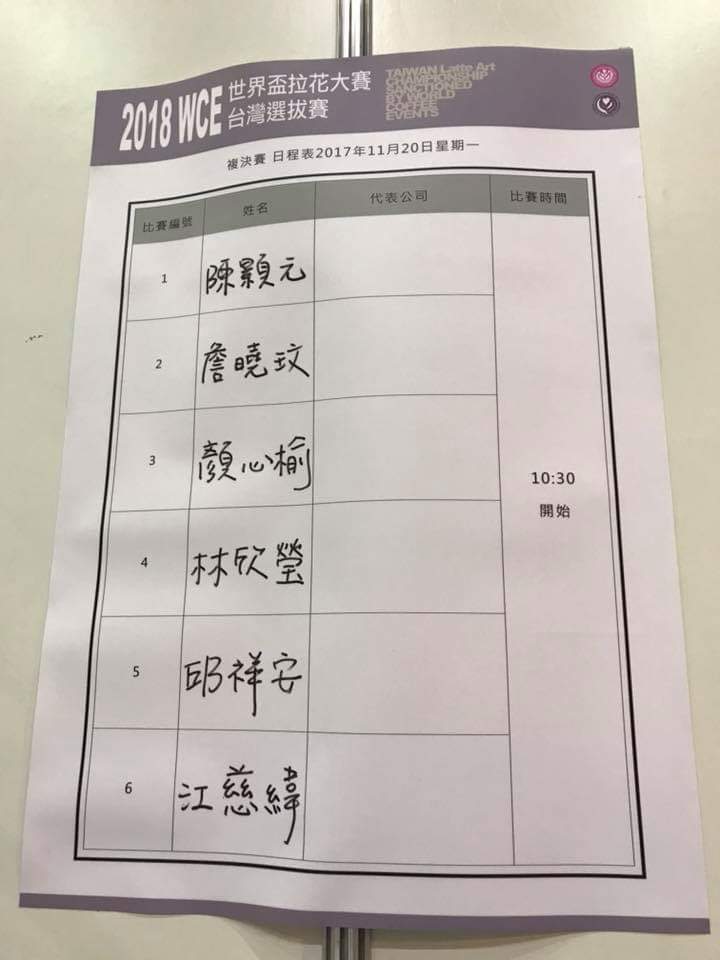 2018 WCE
世界盃拉花大賽
台灣選拔賽
TAIWAN Latte Art
CHAMPIONSHIP
SANCTIONED
BY WORLD
COFFEE
EVENTS
複決賽 日程表2017年11月20日星期一
比賽編號 姓名 代表公司 比賽時間
1 陳顥元
2 詹曉玟
3 顏心榆
10:30
開始
4 林欣瑩
5 邱祥安
6 江慈緯